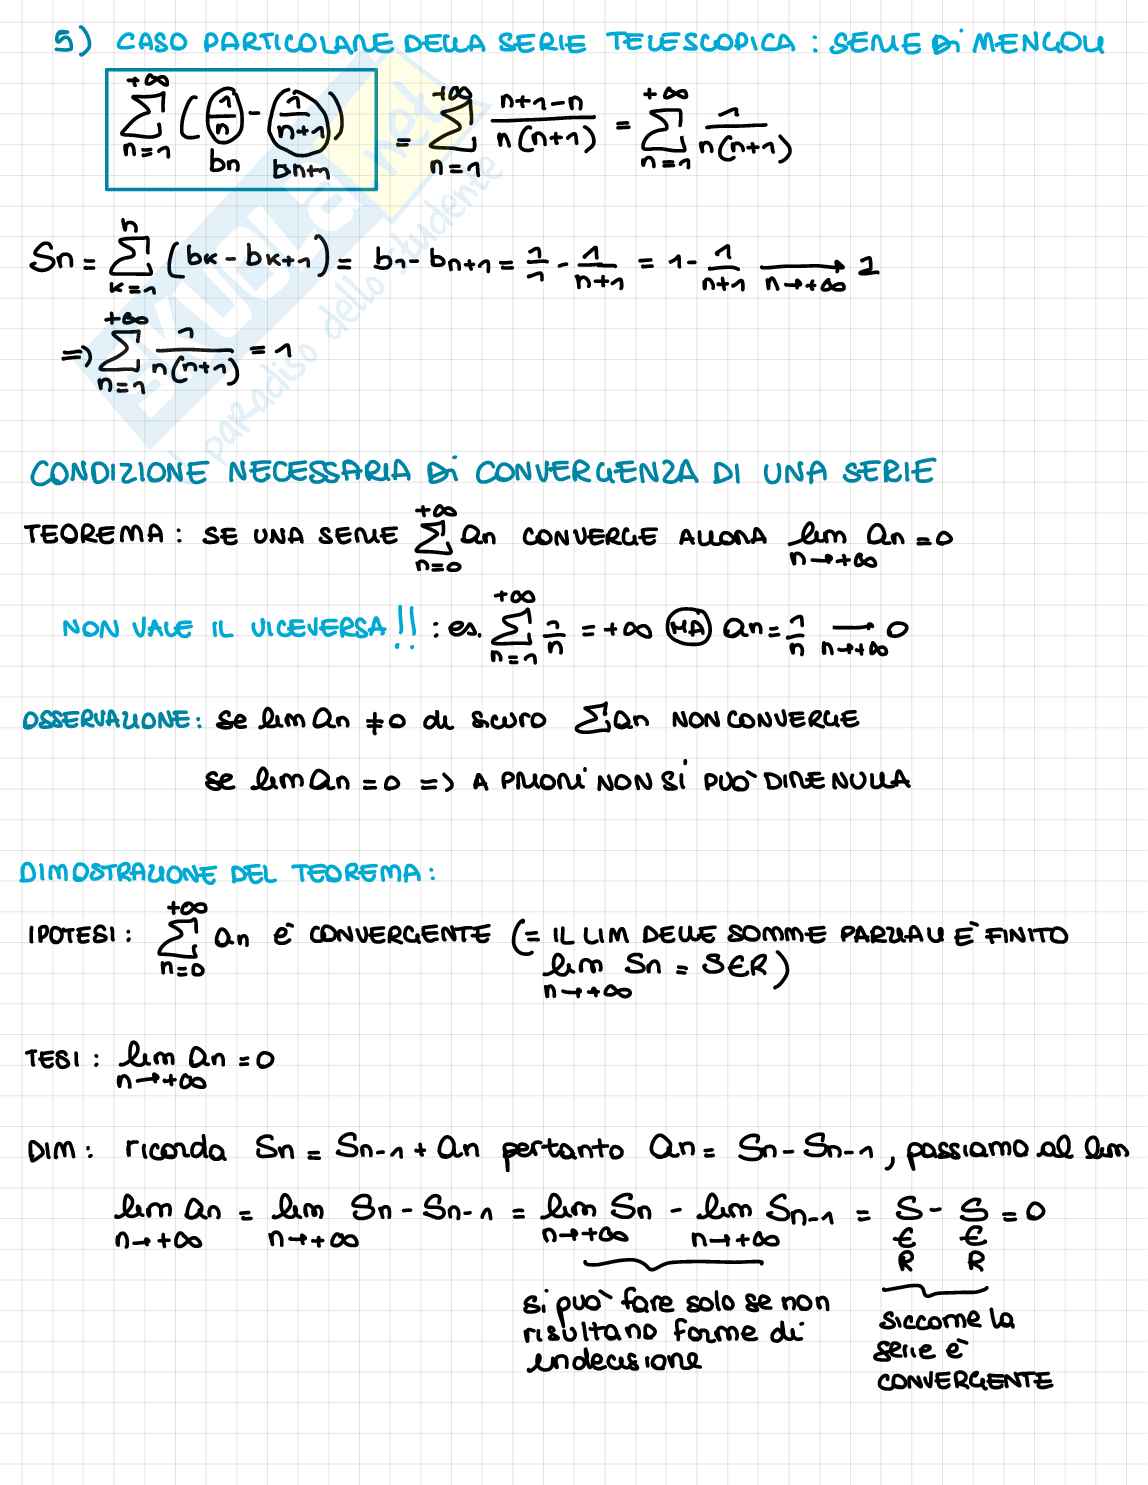 5) CASO PARTICOLARE DELLA SERIE TELESCOPICA : SERIE Di MENGOLI
+∞∑n=1 (1/n - 1/(n+1)) = +∞∑n=1 (n+1-n)/(n(n+1)) = +∞∑n=1 1/(n(n+1))
bn bn+1
Sn = n∑k=1 (bk - bk+1) = b1 - bn+1 = 1/1 - 1/(n+1) = 1 - 1/(n+1) ⟶n→+∞ 1
=> +∞∑n=1 1/(n(n+1)) = 1
CONDIZIONE NECESSARIA Di CONVERGENZA DI UNA SERIE
TEOREMA : SE UNA SERIE +∞∑n=0 an CONVERGE ALLORA lim n→+∞ an = 0
NON VALE IL VICEVERSA!! : es. +∞∑n=1 1/n = +∞ MA an = 1/n ⟶n→+∞ 0
OSSERVAZIONE : se lim an ≠ 0 di sicuro ∑an NON CONVERGE
se lim an = 0 => A PRIORI NON SI PUÒ DIRE NULLA
DIMOSTRAZIONE DEL TEOREMA :
IPOTESI : +∞∑n=0 an è CONVERGENTE (= IL LIM DELLE SOMME PARZIALI È FINITO
lim n→+∞ Sn = S∈R)
TESI : lim n→+∞ an = 0
DIM : ricorda Sn = Sn-1 + an pertanto an = Sn - Sn-1 , passiamo al lim
lim n→+∞ an = lim n→+∞ Sn - Sn-1 = lim n→+∞ Sn - lim n→+∞ Sn-1 = S - S = 0
∈ ∈
R R
si può fare solo se non
risultano forme di
indecisione
siccome la
serie è
CONVERGENTE
SKUOLa.net
il paradiso dello studente